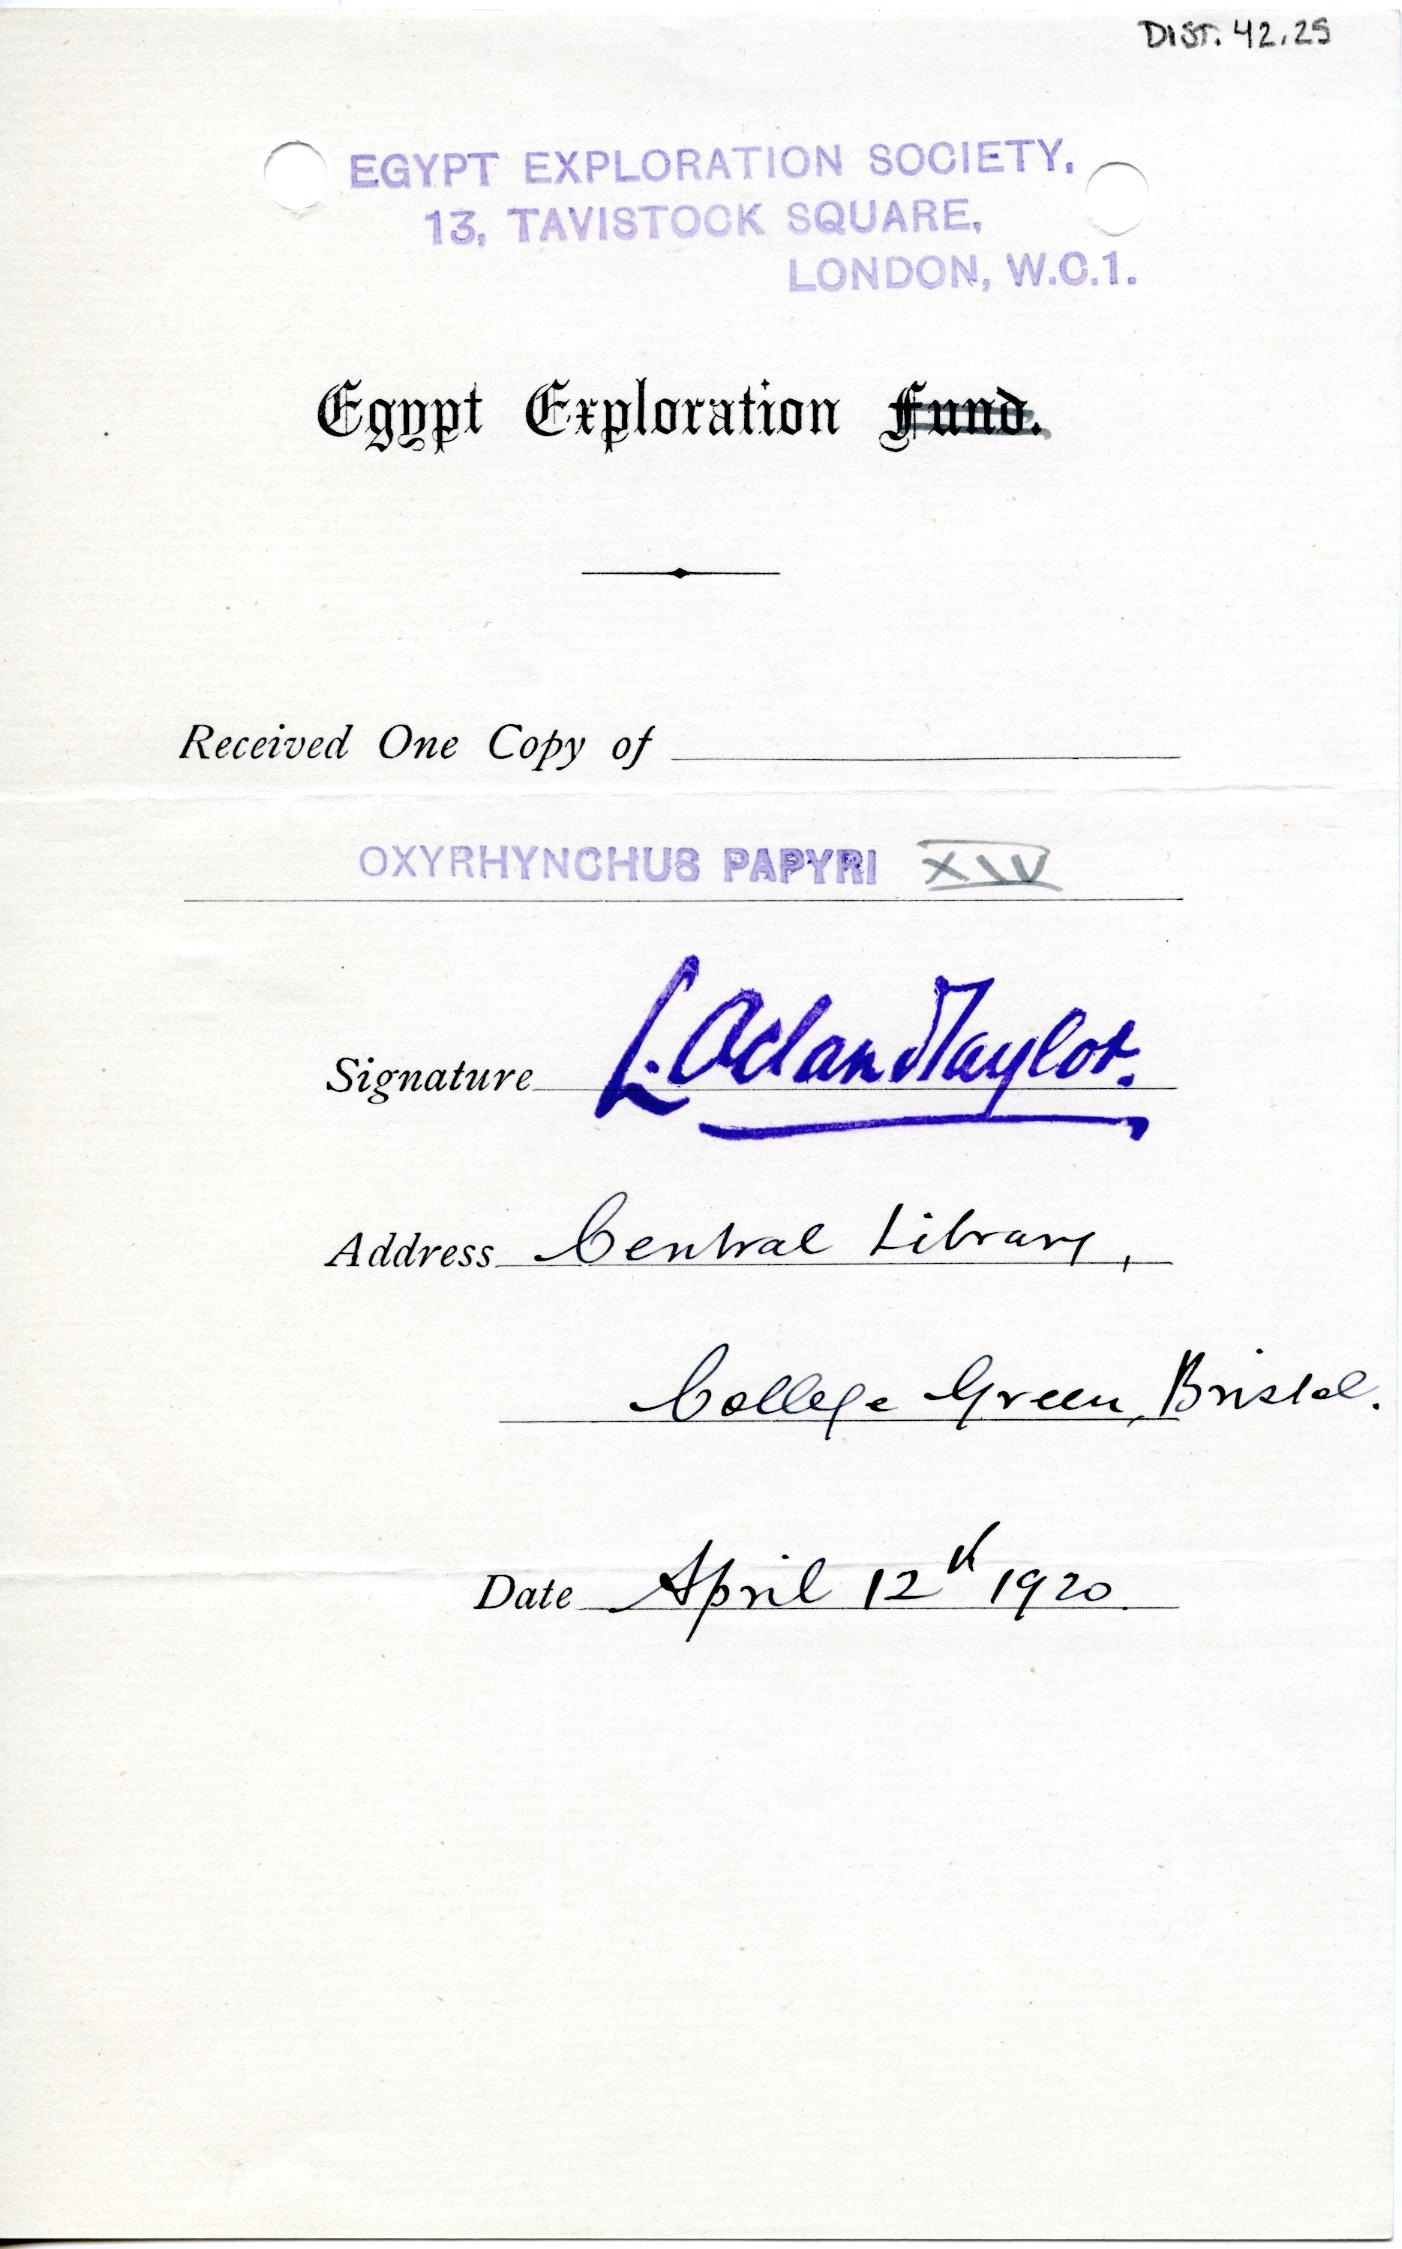 DIST. 42.25
EGYPT EXPLORATION SOCIETY,
13, TAVISTOCK SQUARE,
LONDON, W.C.1.
Egypt Exploration Fund.
Received One Copy of
OXYRHYNCHUS PAPYRI XIV
Signature L. Acland Taylor.
Address Central Library,
College Green, Bristol.
Date April 12th 1920.